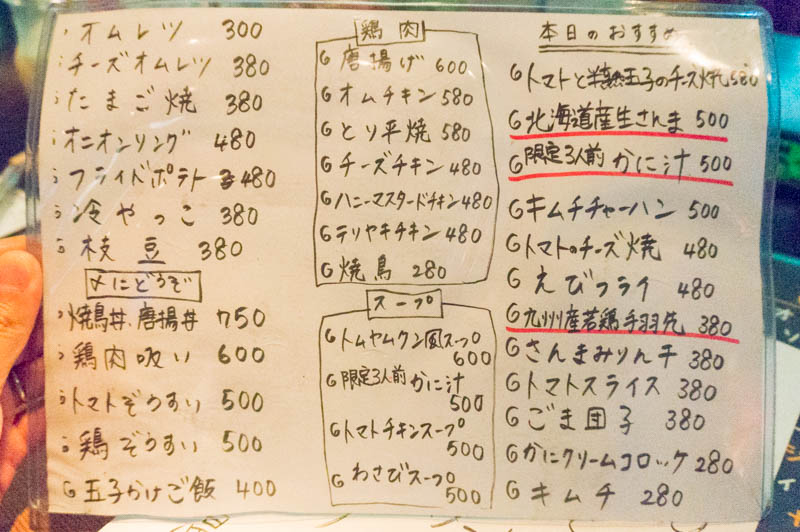 オムレツ 300
チーズオムレツ 380
たまご焼 380
オニオンリング 480
フライドポテト 480
冷やっこ 380
枝豆 380
〆にどうぞ
焼鳥丼、唐揚丼 750
鶏肉吸い 600
トマトぞうすい 500
鶏ぞうすい 500
玉子かけご飯 400
鶏肉
唐揚げ 600
オムチキン 580
とり平焼 580
チーズチキン 480
ハニーマスタードチキン 480
テリヤキチキン 480
焼鳥 280
スープ
トムヤムクン風スープ
600
限定3人前 かに汁
500
トマトチキンスープ
500
わさびスープ
500
本日のおすすめ
トマトと半熟玉子のチーズ焼 580
北海道産生さんま 500
限定3人前 かに汁 500
キムチチャーハン 500
トマトのチーズ焼 480
えびフライ 480
九州産若鶏手羽先 380
さんまみりん干 380
トマトスライス 380
ごま団子 380
かにクリームコロッケ 280
キムチ 280